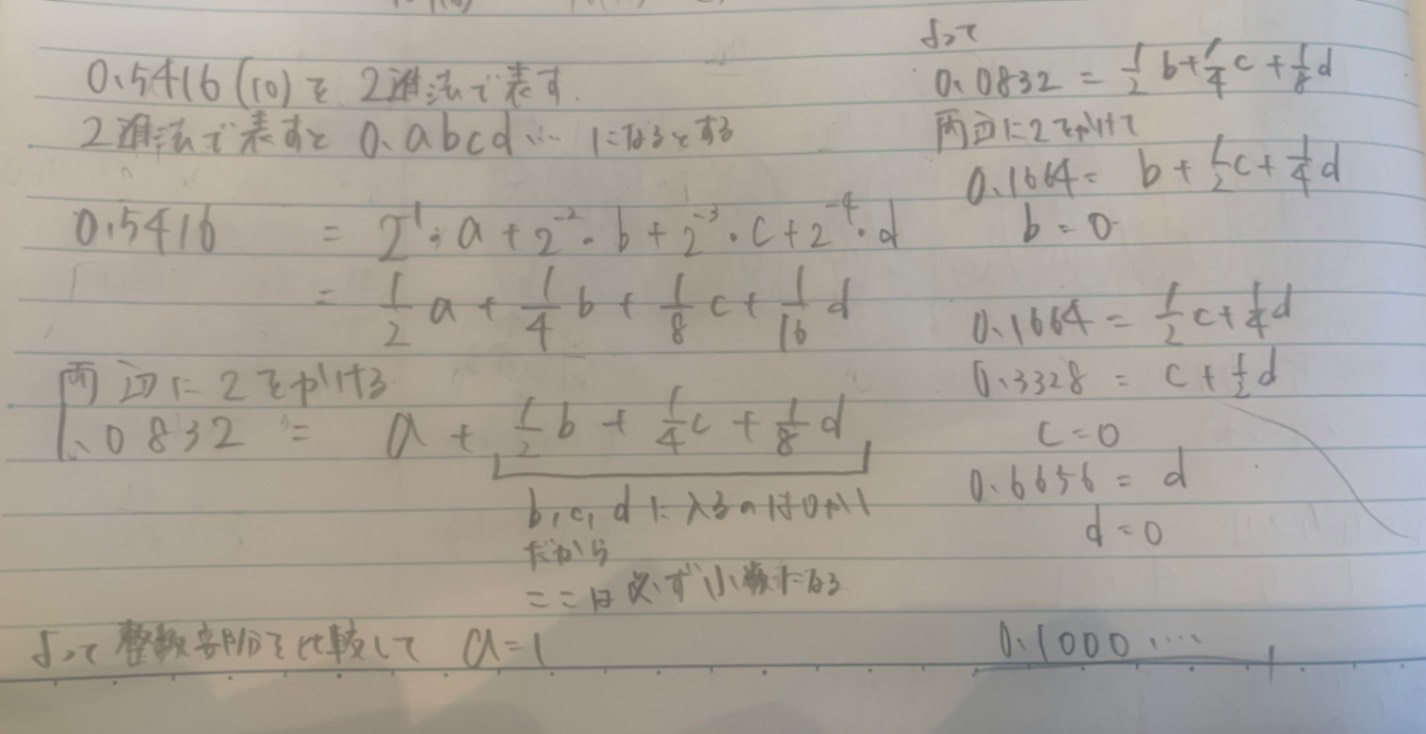 0.5416(10)を2進法で表す.
2進法で表すと 0.abcd… になるとする
0.5416 = 2^-1・a + 2^-2・b + 2^-3・c + 2^-4・d
= 1/2 a + 1/4 b + 1/8 c + 1/16 d
両辺に2をかける
1.0832 = a + 1/2 b + 1/4 c + 1/8 d
b, c, dに入るのは0か1
だから
ここは必ず小数になる
よって整数部分を比較して a=1
よって
0.0832 = 1/2 b + 1/4 c + 1/8 d
両辺に2をかけて
0.1664 = b + 1/2 c + 1/4 d
b = 0
0.1664 = 1/2 c + 1/4 d
0.3328 = c + 1/2 d
c = 0
0.6656 = d
d = 0
0.1000…